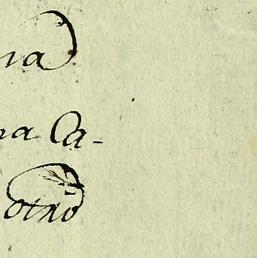 na
na Ca-
otro